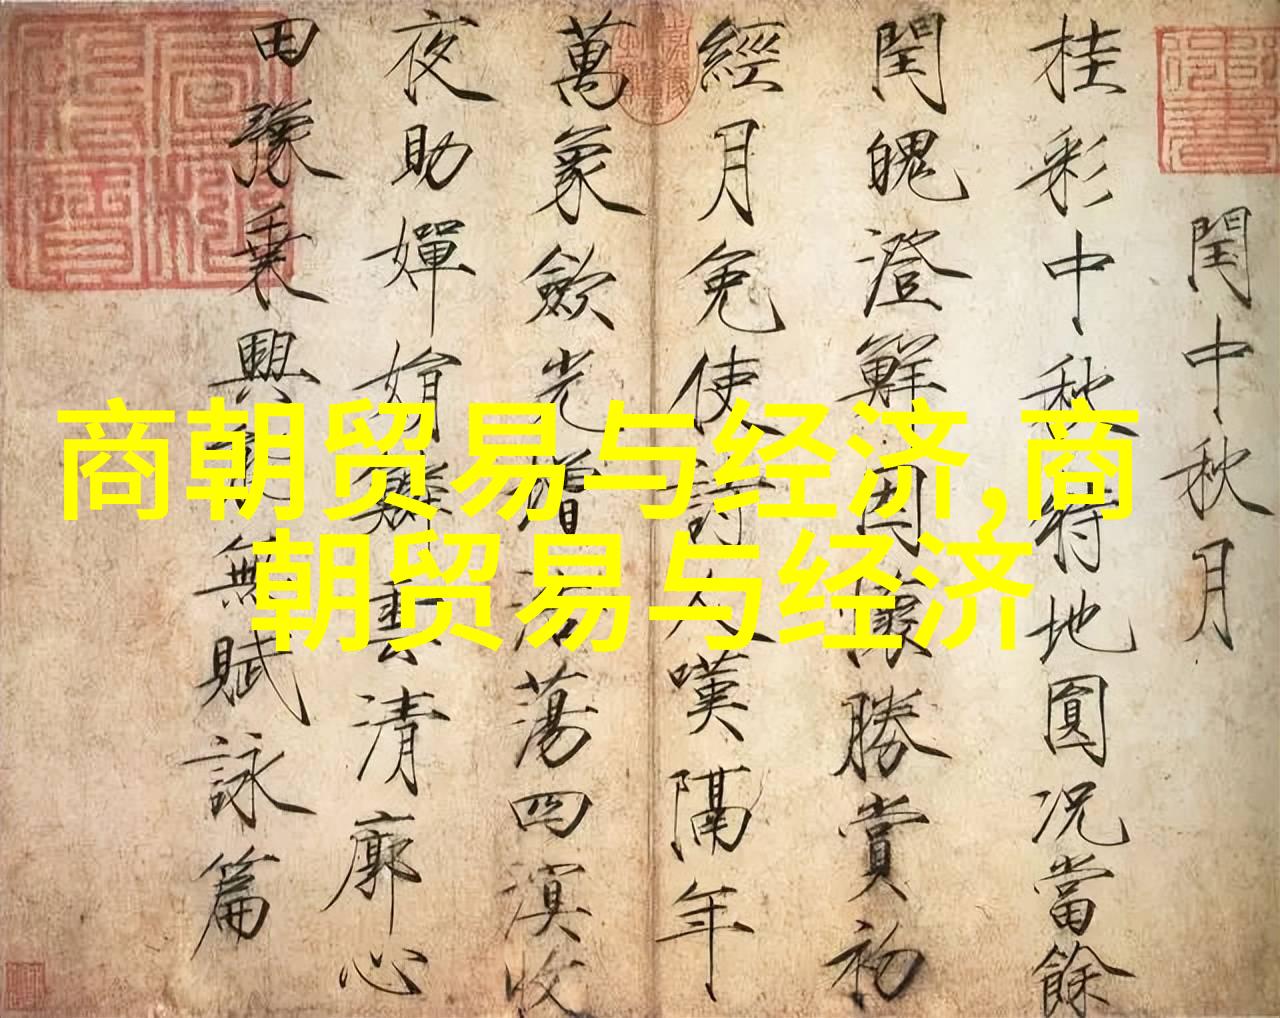 閏中秋月
桂彩中秋特地圓況當餘
閏魄澄鮮因懷勝賞初
經月免使詩人嘆隔年
萬象歛光增浩蕩四溟收
夜助嬋娟雲清廓心
田豫乗興無賦詠篇
商朝贸易与经济,商
朝贸易与经济